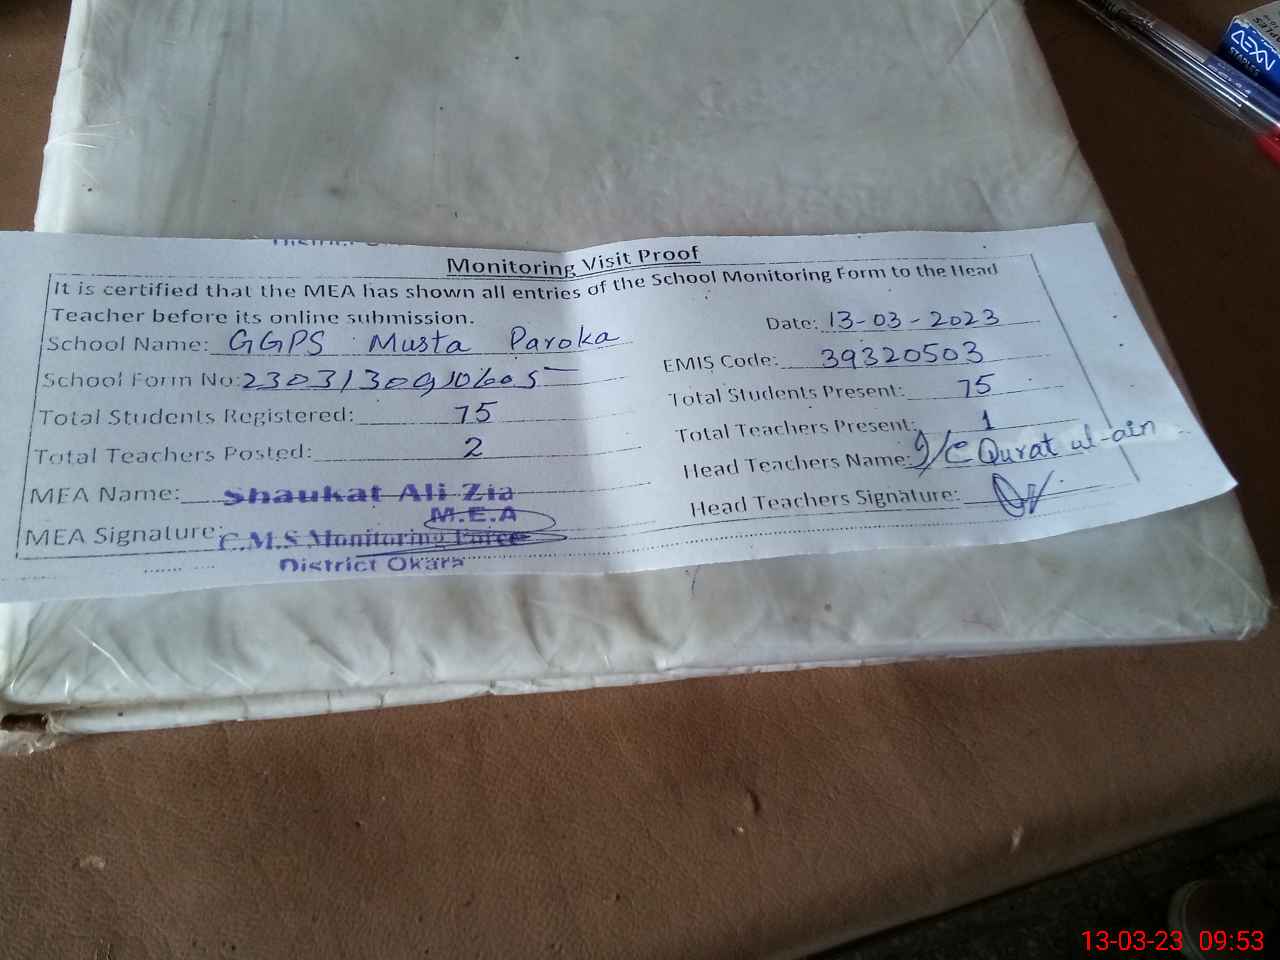 AEXN
STAPLES
Monitoring Visit Proof
It is certified that the MEA has shown all entries of the School Monitoring Form to the Head
Teacher before its online submission.
Date: 13-03-2023
School Name: GGPS Musta Paroka
EMIS Code: 39320503
School Form No:
Total Students Present: 75
Total Students Registered: 75
Total Teachers Present: 1
Total Teachers Posted: 2
Head Teachers Name: I/C Qurat ul-ain
MEA Name: Shaukat Ali Zia
Head Teachers Signature:
M.E.A
MEA Signature: C.M.S Monitoring Force
District Okara
13-03-23 09:53